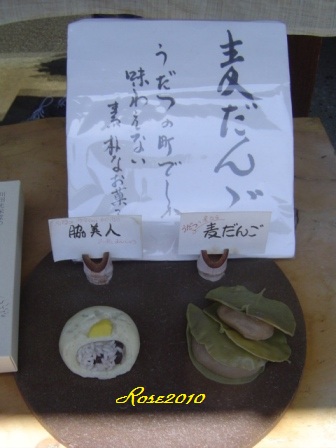 麦だんご
うだつの町でしか
味わえない
素朴なお菓子
脇美人
麦だんご
Rose2010